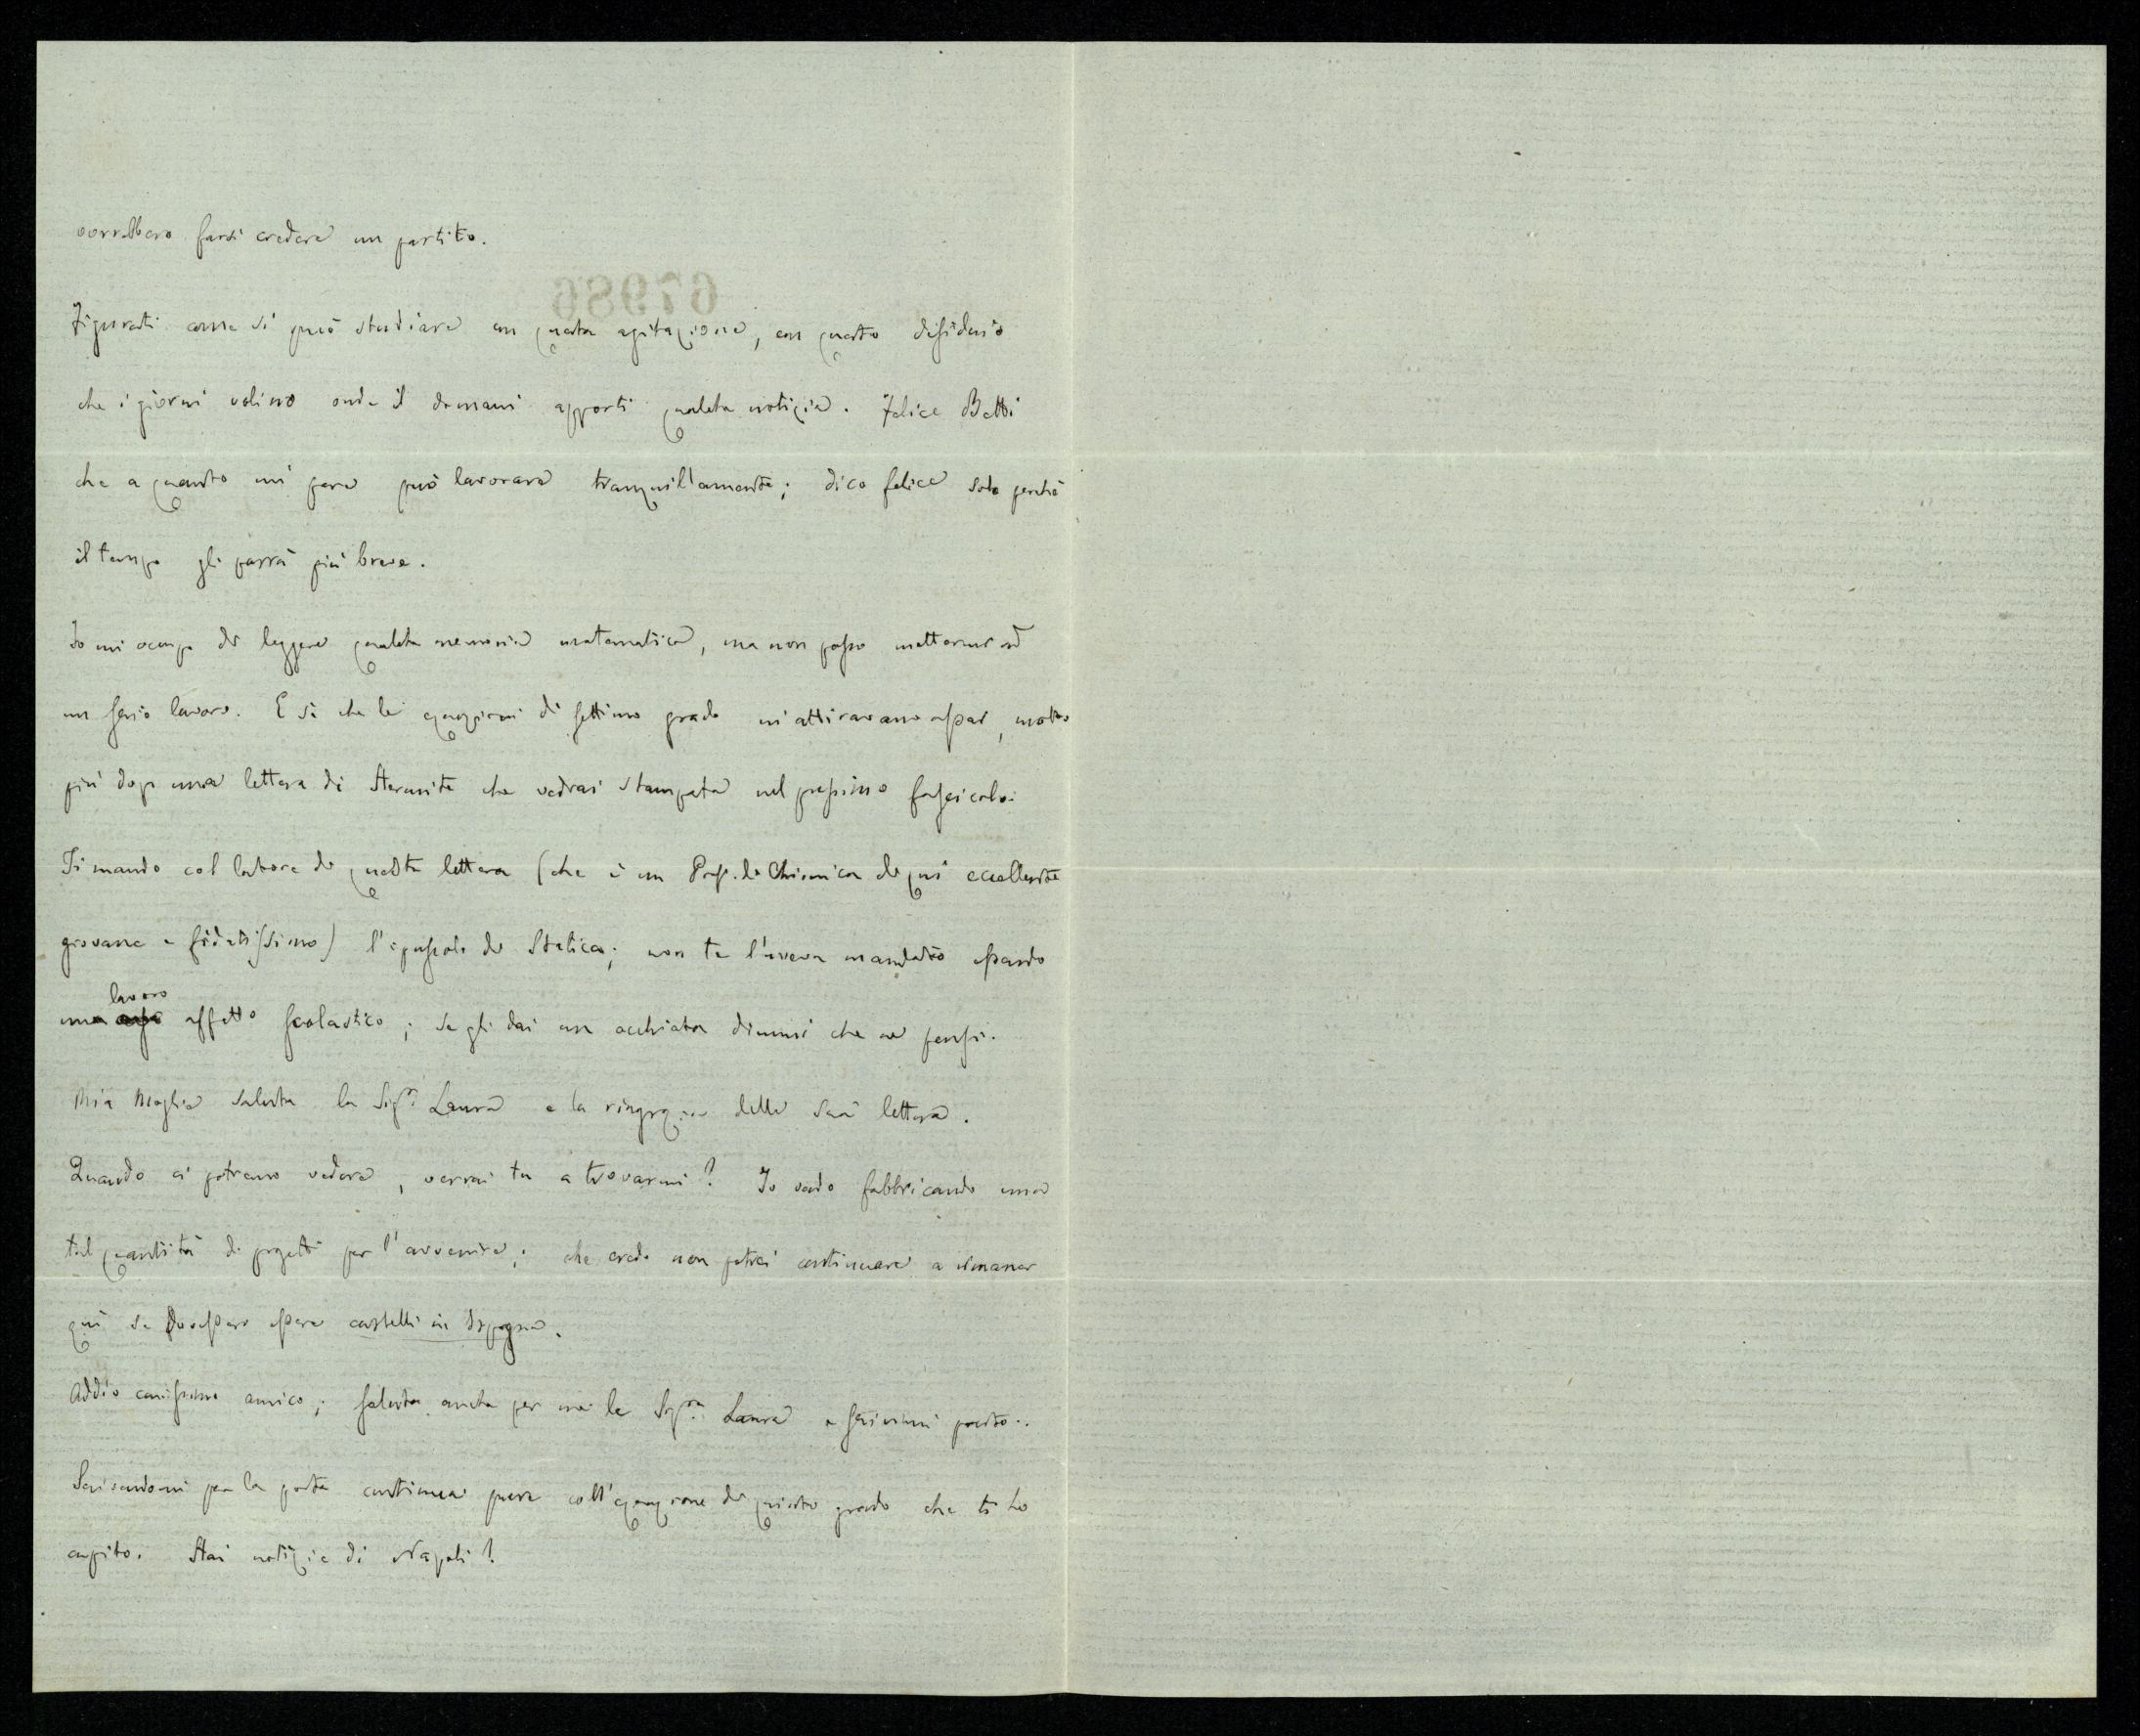 vorrebbero farsi credere un partito.
67986
Figurati come si può studiare con questa agitazione, con questo desiderio
che i giorni volino onde il domani apporti qualche notizia. Felice Betti
che a quanto mi pare può lavorare tranquillamente; dico felice solo perchè
il tempo gli parrà più breve.
Io mi occupo di leggere qualche memoria matematica, ma non posso mettermi ad
un serio lavoro. E sì che le equazioni di settimo grado m'attiravano assai, molto
più dopo una lettera di Hermite che vedrai stampata nel prossimo fascicolo.
Ti mando col latore di questa lettera (che è un Prof. di Chimica di qui eccellente
giovane e fidatissimo) l'opuscolo di Statica; non te l'aveva mandato essendo
lavoro
una cosa affatto scolastico; se gli dai un occhiata dimmi che ne pensi.
Mia Moglie saluta la Sig.ra Laura e la ringrazia della sua lettera.
Quando ci potremo vedere, verrai tu a trovarmi? Io vado fabbricando una
tal quantità di progetti per l'avvenire; che credo non potrei continuare a rimaner
qui se dovessero essere castelli in Ispagna.
Addio carissimo amico; saluta anche per me la Sig.ra Laura e scrivimi presto.
Scrivendomi per la posta continua pure coll'equazione di quinto grado che ti ho
capito. Hai notizie di Napoli?